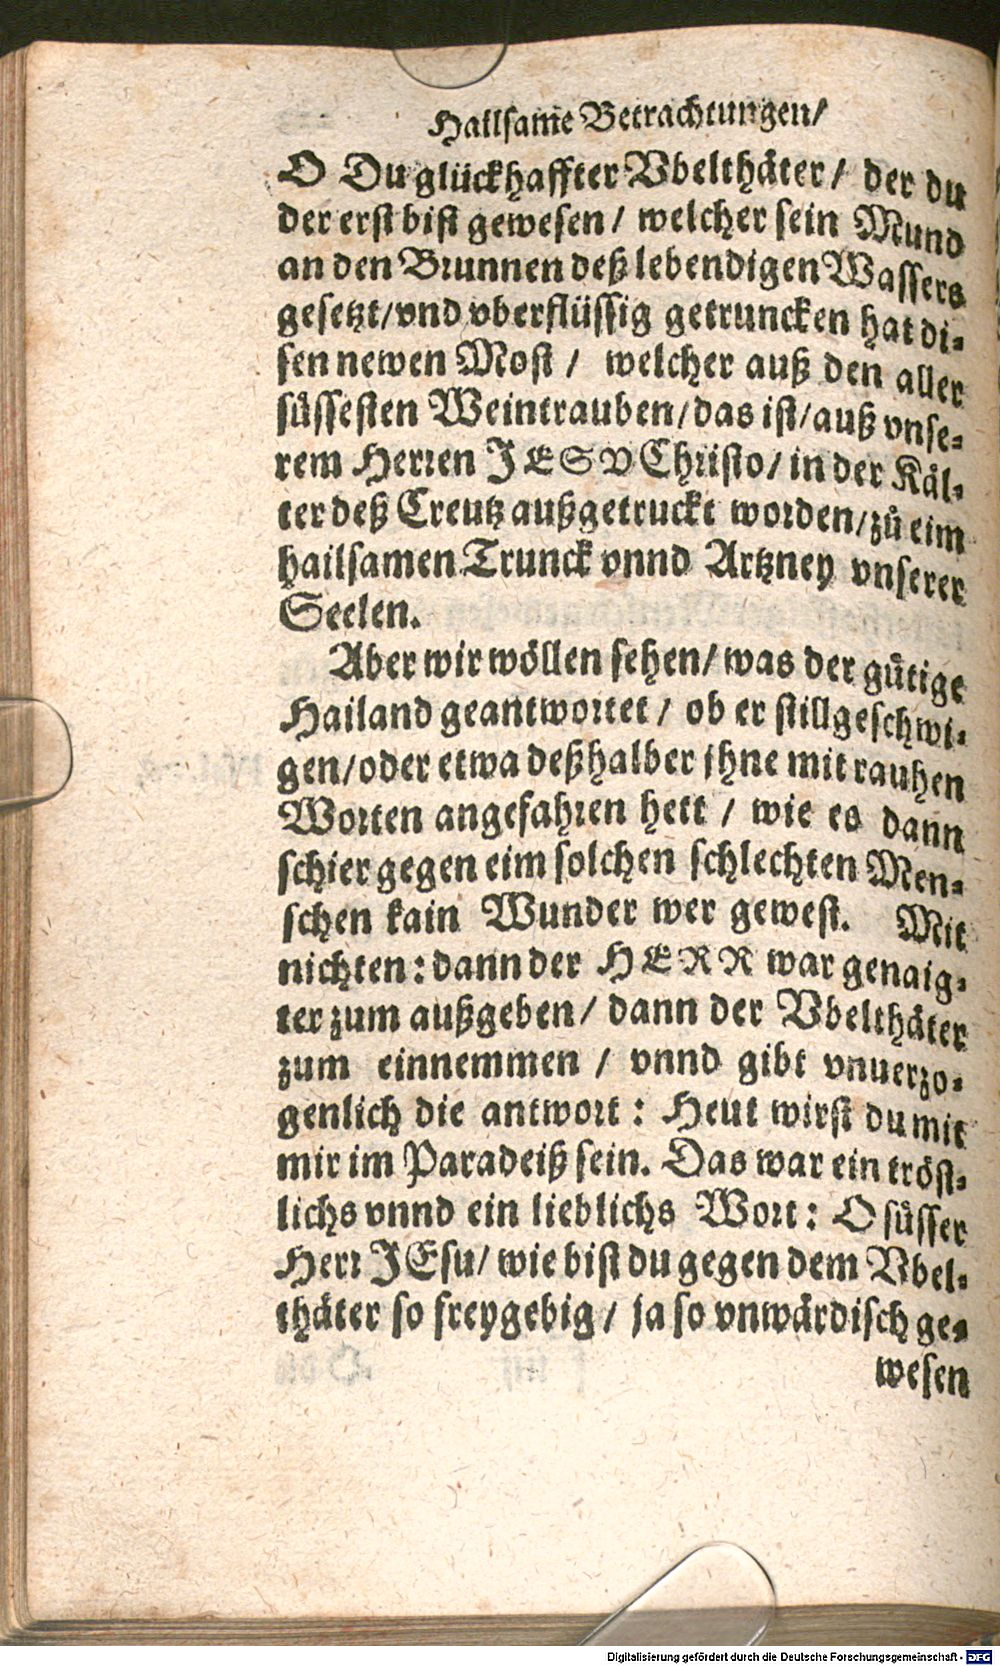 Hailsame Betrachtungen/
O Du glückhaffter Vbelthäter/ der du
der erst bist gewesen/ welcher sein Mund
an den Brunnen deß lebendigen Wassers
gesetzt/vnd vberflüssig getruncken hat di-
sen newen Most/ welcher auß den aller
süssesten Weintrauben/das ist/auß vnse-
rem Herren JESV Christo/ in der Käl-
ter deß Creutz außgetruckt worden/zů eim
hailsamen Trunck vnnd Artzney vnserer
Seelen.
Aber wir wöllen sehen/ was der gütige
Hailand geantwortet/ ob er stillgeschwi-
gen/oder etwa deßhalber jhne mit rauhen
Worten angefahren hett/ wie es dann
schier gegen eim solchen schlechten Men-
schen kain Wunder wer gewest. Mit
nichten: dann der HERR war genaig-
ter zum außgeben/ dann der Vbelthäter
zum einnemmen/ vnnd gibt vnuerzo-
genlich die antwort: Heut wirst du mit
mir im Paradeiß sein. Das war ein tröst-
lichs vnnd ein lieblichs Wort: O süsser
Herr JEsu/ wie bist du gegen dem Vbel-
thäter so freygebig/ ja so vnwärdisch ge-
wesen
Digitalisierung gefördert durch die Deutsche Forschungsgemeinschaft - DFG